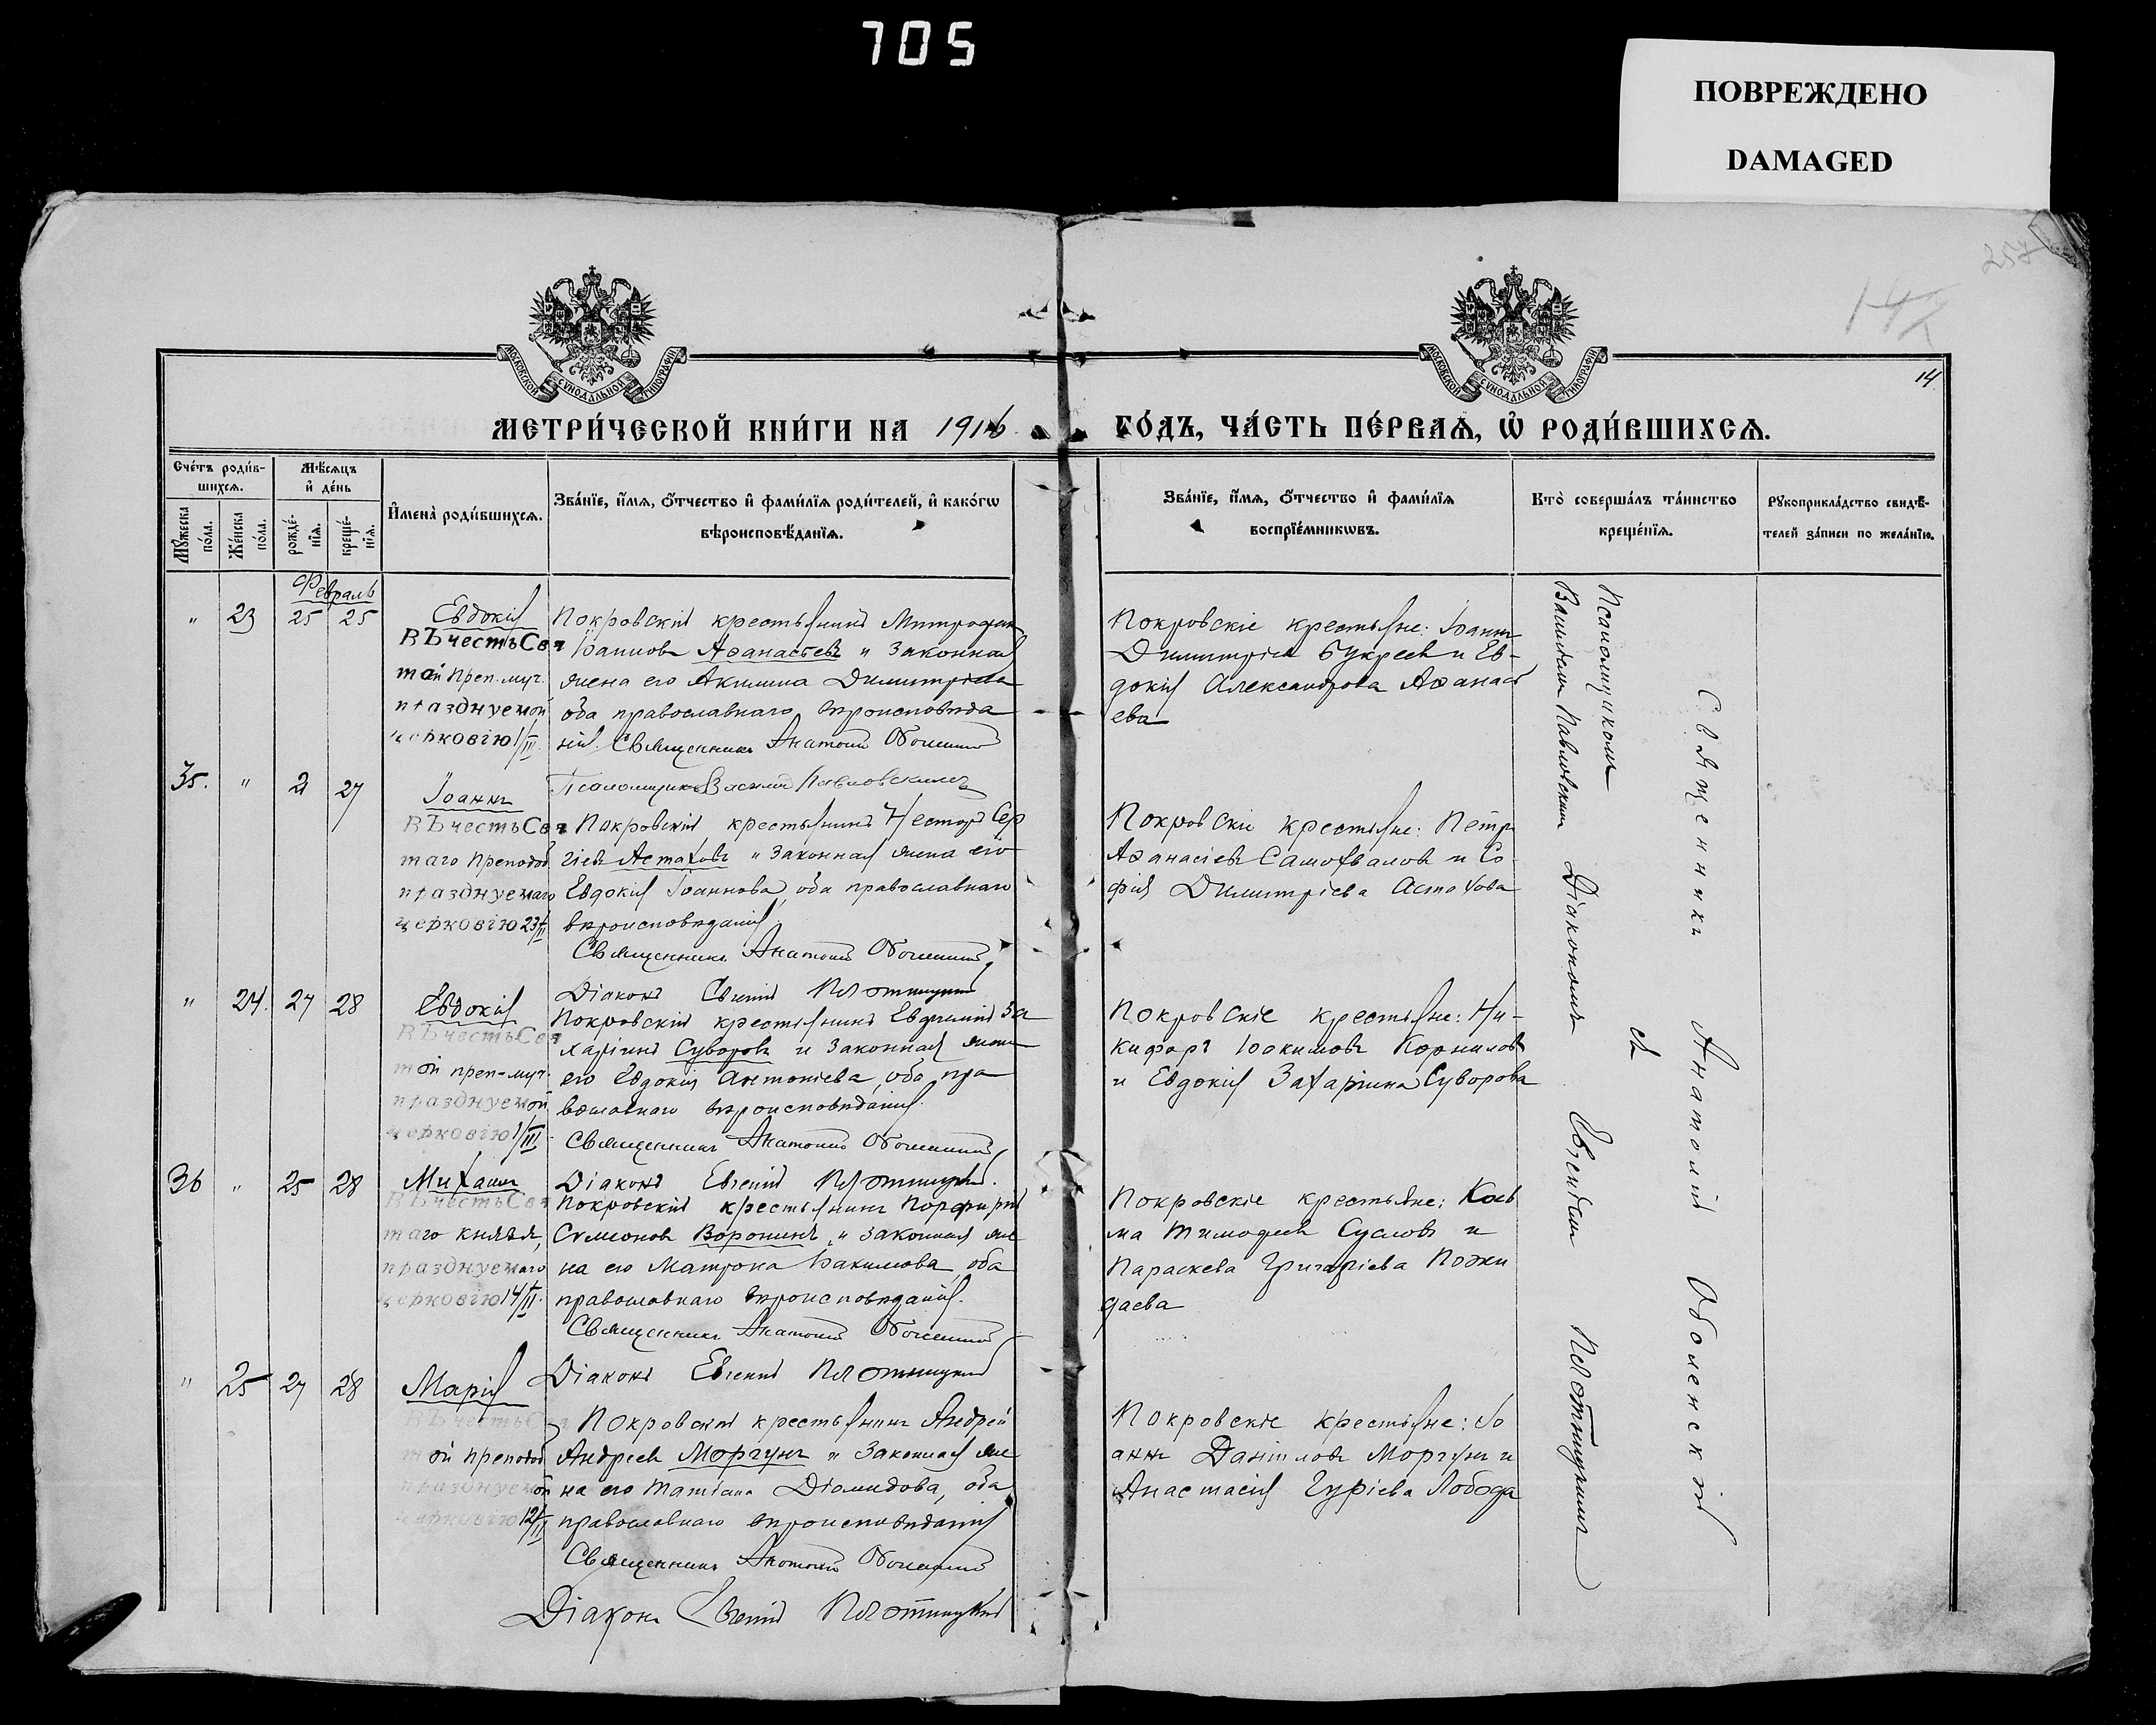 705
ПОВРЕЖДЕНО
DAMAGED
257
14
14
МОСКОВСКОЙ СѴНОДАЛЬНОЙ ТИПОГРАФІИ
МОСКОВСКОЙ СѴНОДАЛЬНОЙ ТИПОГРАФІИ
МЕТРИ́ЧЕСКОЙ КНИ́ГИ НА 1916
ГО́ДЪ, ЧА́СТЬ ПЕ́РВАѦ, Ѽ РОДИ́ВШИХСѦ.
Сче́тъ роди́в-
шихсѧ.
Мѣ́сѧцъ
и҆ де́нь
Мꙋ́жеска
по́ла.
Же́нска
по́ла.
рожде́-
нїѧ.
креще́-
нїѧ.
И҆мена̀ роди́вшихсѧ.
Зва́нїе, и҆́мѧ, ѻ҆́тчество и҆ фами́лїѧ роди́телей, и҆ како́гѡ
вѣроисповѣ́данїѧ.
Зва́нїе, и҆́мѧ, ѻ҆́тчество и҆ фами́лїѧ
воспрїе́мникѡвъ.
Кто̀ соверша́лъ та́инство
креще́нїѧ.
Рꙋкоприкла́дство свидѣ́-
телей за́писи по жела́нїю.
Февраль
" 23 25 25
Евдокія
ВЪ честь Свя
той преп.-муч.
празднуемой
церковію 1/III
Покровскій крестьянинъ Митрофан
Іоанновъ Аѳанасьевъ и законная
жена его Акилина Димитріева
оба православнаго вѣроисповѣда
нія. Священникъ Анатолій Оболенскій
Псаломщикъ Василій Павловскій
Покровскіе крестьяне: Іоаннъ
Димитріевъ Букреевъ и Ев-
докія Александрова Аѳанась
ева
35. " 2 27
Іоаннъ
ВЪ честь Свя
таго преподоб
празднуемаго
церковію 23/II
Покровскій крестьянинъ Несторъ Сер
гіевъ Астаховъ и законная жена его
Евдокія Іоаннова, оба православнаго
вѣроисповѣданія.
Священникъ Анатолій Оболенскій
Діаконъ Евгеній Плотницкій
Покровскіе крестьяне: Петръ
Аѳанасіевъ Самохваловъ и Со-
фія Димитріева Астахова
" 24. 27 28
Евдокія
ВЪ честь Свя
той преп-муч.
празднуемой
церковію 1/III
Покровскій крестьянинъ Евфимій За
харіинъ Суворовъ и законная жена
его Евдокія Антоніева, оба пра
вославнаго вѣроисповѣданія.
Священникъ Анатолій Оболенскій
Діаконъ Евгеній Плотницкій.
Покровскіе крестьяне: Ни-
кифоръ Іоакимовъ Корниловъ
и Евдокія Захаріина Суворова
36 " 25 28
Михаилъ
ВЪ честь Свя
таго князя,
празднуемаго
церковію 14/II.
Покровскій крестьянинъ Порфирій
Сѵмеоновъ Воронинъ и законная же
на его Матрона Іоакимова, оба
православнаго вѣроисповѣданія.
Священникъ Анатолій Оболенскій
Діаконъ Евгеній Плотницкій
Покровскіе крестьяне: Кось
ма Тимоѳеевъ Сусловъ и
Параскева Григоріева Пожи
даева
" 25 27 28
Марія
ВЪ честь Свя
той преподоб
празднуемой
церковію 12/II
Покровскій крестьянинъ Андрей
Андреевъ Моргунъ и законная же
на его Татіана Діомидова, оба
православнаго вѣроисповѣданія
Священникъ Анатолій Оболенскій
Діаконъ Евгеній Плотницкій
Покровскіе крестьяне: Іо
аннъ Даніиловъ Моргунъ и
Анастасія Гуріева Лобода
Священникъ Анатолій Оболенскій
съ
Псаломщикомъ
Василіемъ Павловскимъ Діакономъ Евгеніемъ Плотницкимъ